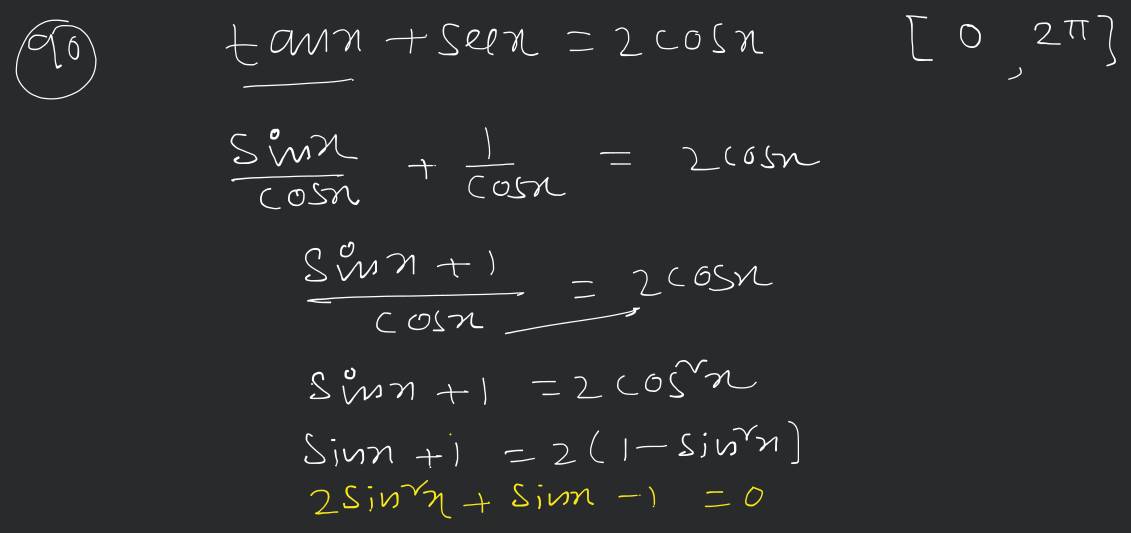 90 tanx + secx = 2cosx [0, 2π]
sinx/cosx + 1/cosx = 2cosx
(sinx + 1)/cosx = 2cosx
sinx + 1 = 2cos²x
sinx + 1 = 2(1 - sin²x]
2sin²x + sinx - 1 = 0